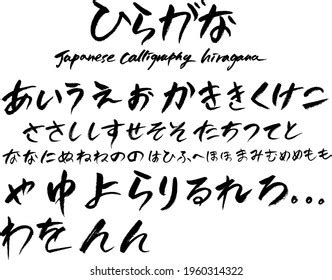 ひらがな
Japanese Calligraphy hiragana
あいうえお かききくけこ
ささししすせそそ たちつてと
ななにぬねねののはひふへほほまみむめめもも
やゆよらりるれろ...
わをんん
shutterstock.com · 1960314322